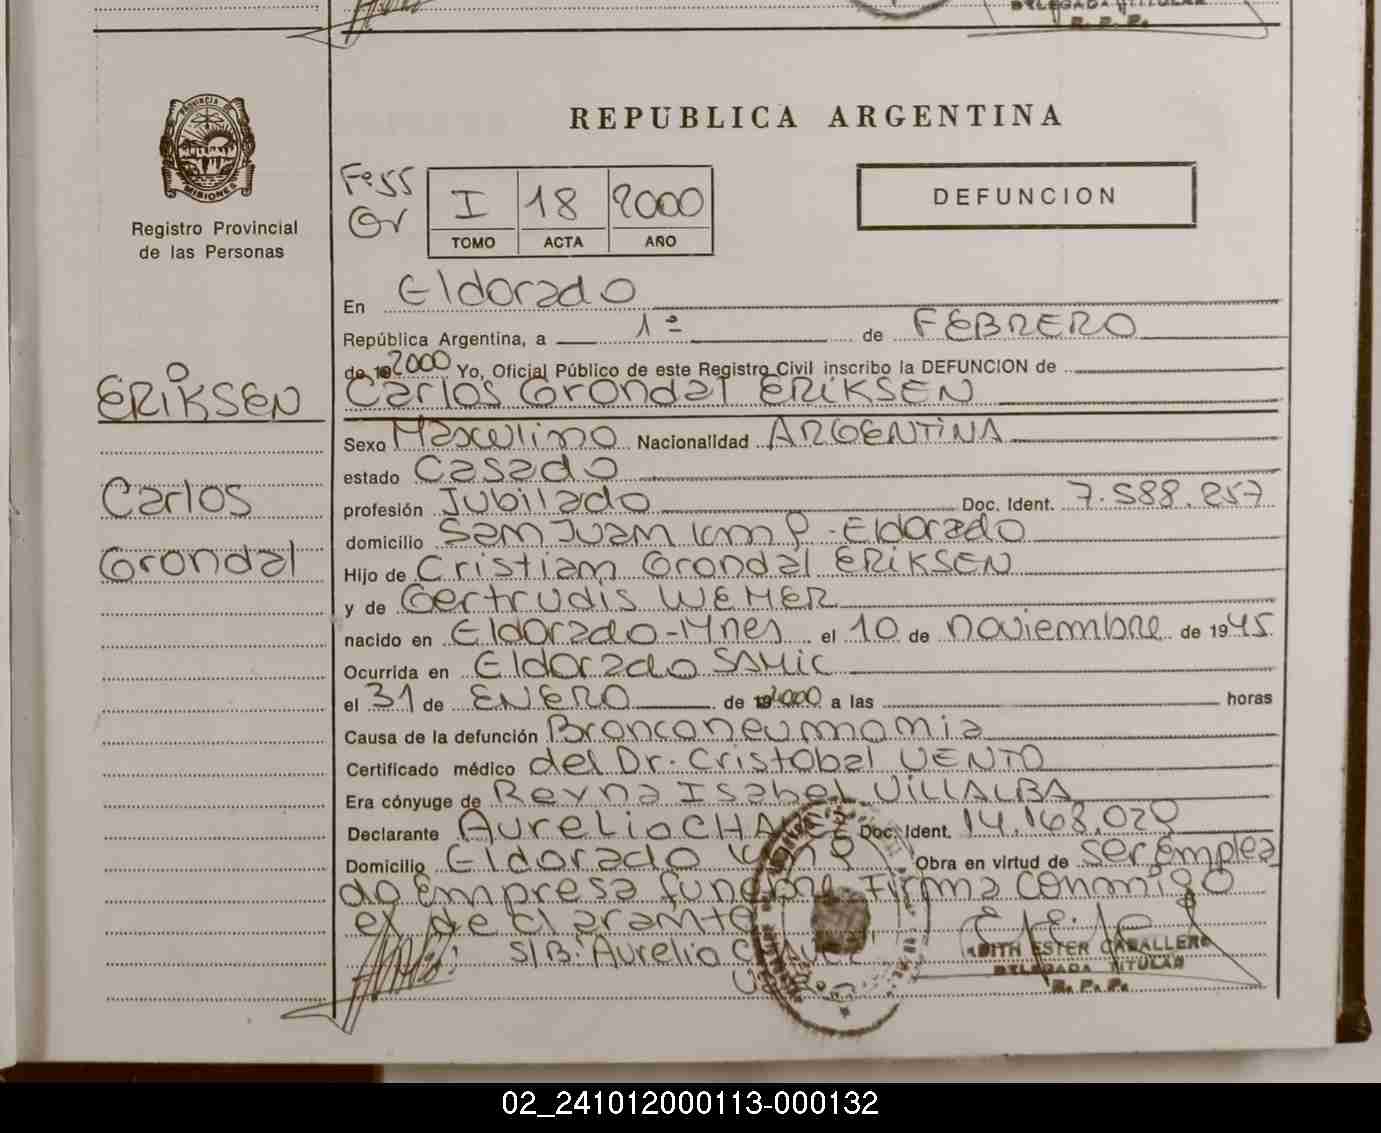 DELEGADA TITULAR
R. P. P.
PROVINCIA DE
MISIONES
Registro Provincial
de las Personas
REPUBLICA ARGENTINA
I 18 2000
TOMO ACTA AÑO
DEFUNCION
En Eldorado
República Argentina, a 1º de FEBRERO
de 19 2000 Yo, Oficial Público de este Registro Civil inscribo la DEFUNCION de
Carlos Grondal ERIKSEN
ERIKSEN
Carlos
Grondal
Sexo Masculino Nacionalidad ARGENTINA
estado Casado
profesión Jubilado Doc. Ident. 7.588.257
domicilio San Juan Km 9 - Eldorado
Hijo de Cristian Grondal ERIKSEN
y de Gertrudis WEHER
nacido en Eldorado - Mnes el 10 de noviembre de 1945
Ocurrida en Eldorado SAMIC
el 31 de ENERO de 19 2000 a las horas
Causa de la defunción Bronconeumonia
Certificado médico del Dr. Cristobal VENTO
Era cónyuge de Reyna Isabel VILLALBA
Declarante Aurelio CHAVEZ Doc. Ident. 14.168.020
Domicilio Eldorado Km 9 Obra en virtud de ser emplea
do Empresa funebre Firma conmigo
el declarante
S/B: Aurelio CHAVEZ
EDITH ESTER CABALLERO
DELEGADA TITULAR
R. P. P.
02_241012000113-000132